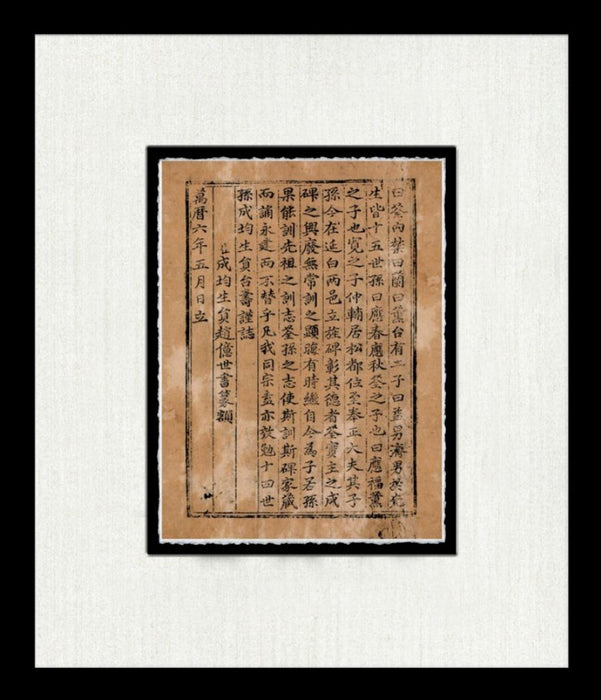 曰筌內禁曰蘭曰薰台有二子曰益男濟男於先
生皆十五世孫曰應春應秋筌之子也曰應福薰
之子也寬之子仲輔居松都位至奉正大夫其子
孫今在延白兩邑立旌碑彰其德者筌實主之成
碑之興廢無常訓之顯聰有時繼自今為子若孫
果能訓先祖之訓志筌孫之志使斯訓斯碑家藏
而誦永建而不替乎凡我同宗盍亦敦勉十四世
孫成均生負台壽謹誌
成均生負趙億世書篆額
萬曆六年五月日立